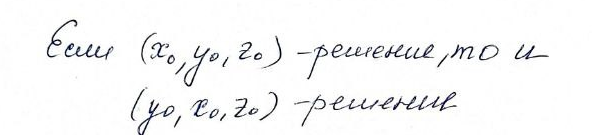 Если (x₀, y₀, z₀) - решение, то и
(y₀, x₀, z₀) - решение